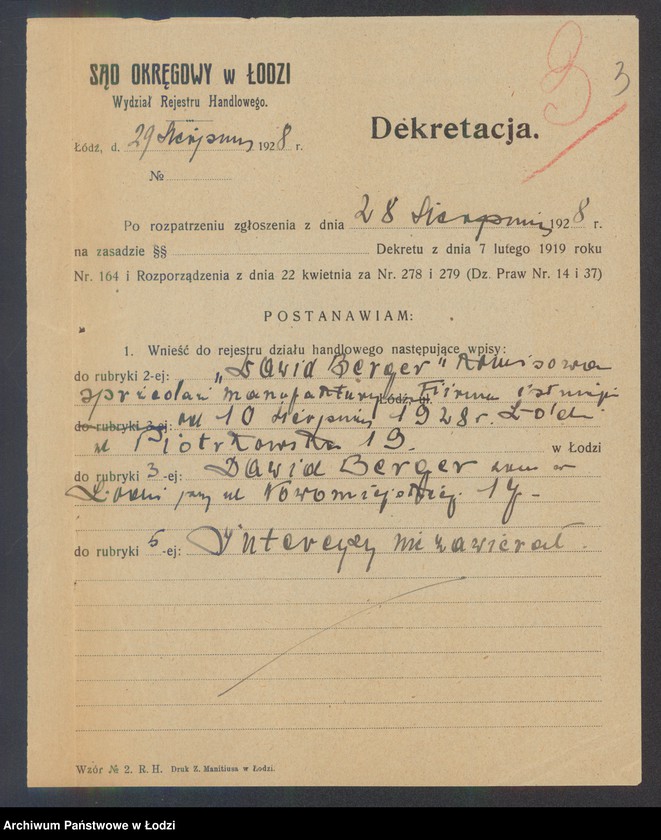 3 3
SĄD OKRĘGOWY w ŁODZI
Wydział Rejestru Handlowego.
Dekretacja.
Łódź, d. 29 Sierpnia 1928 r.
№
Po rozpatrzeniu zgłoszenia z dnia 28 Sierpnia 1928 r.
na zasadzie §§ Dekretu z dnia 7 lutego 1919 roku
Nr. 164 i Rozporządzenia z dnia 22 kwietnia za Nr. 278 i 279 (Dz. Praw Nr. 14 i 37)
POSTANAWIAM:
1. Wnieść do rejestru działu handlowego następujące wpisy:
do rubryki 2-ej: „Dawid Berger" Komisowa
sprzedaż manufaktury Łódź, ul. Firma istnieje
do rubryki 3-ej: od 10 sierpnia 1928 r. Łódź
ul Piotrkowska 19. w Łodzi
do rubryki 3-ej: Dawid Berger zam w
Łodzi przy ul Nowomiejskiej 17-
do rubryki 5-ej: Intercyzy nie zawierał.
Wzór № 2. R. H. Druk Z. Manitiusa w Łodzi.
Archiwum Państwowe w Łodzi